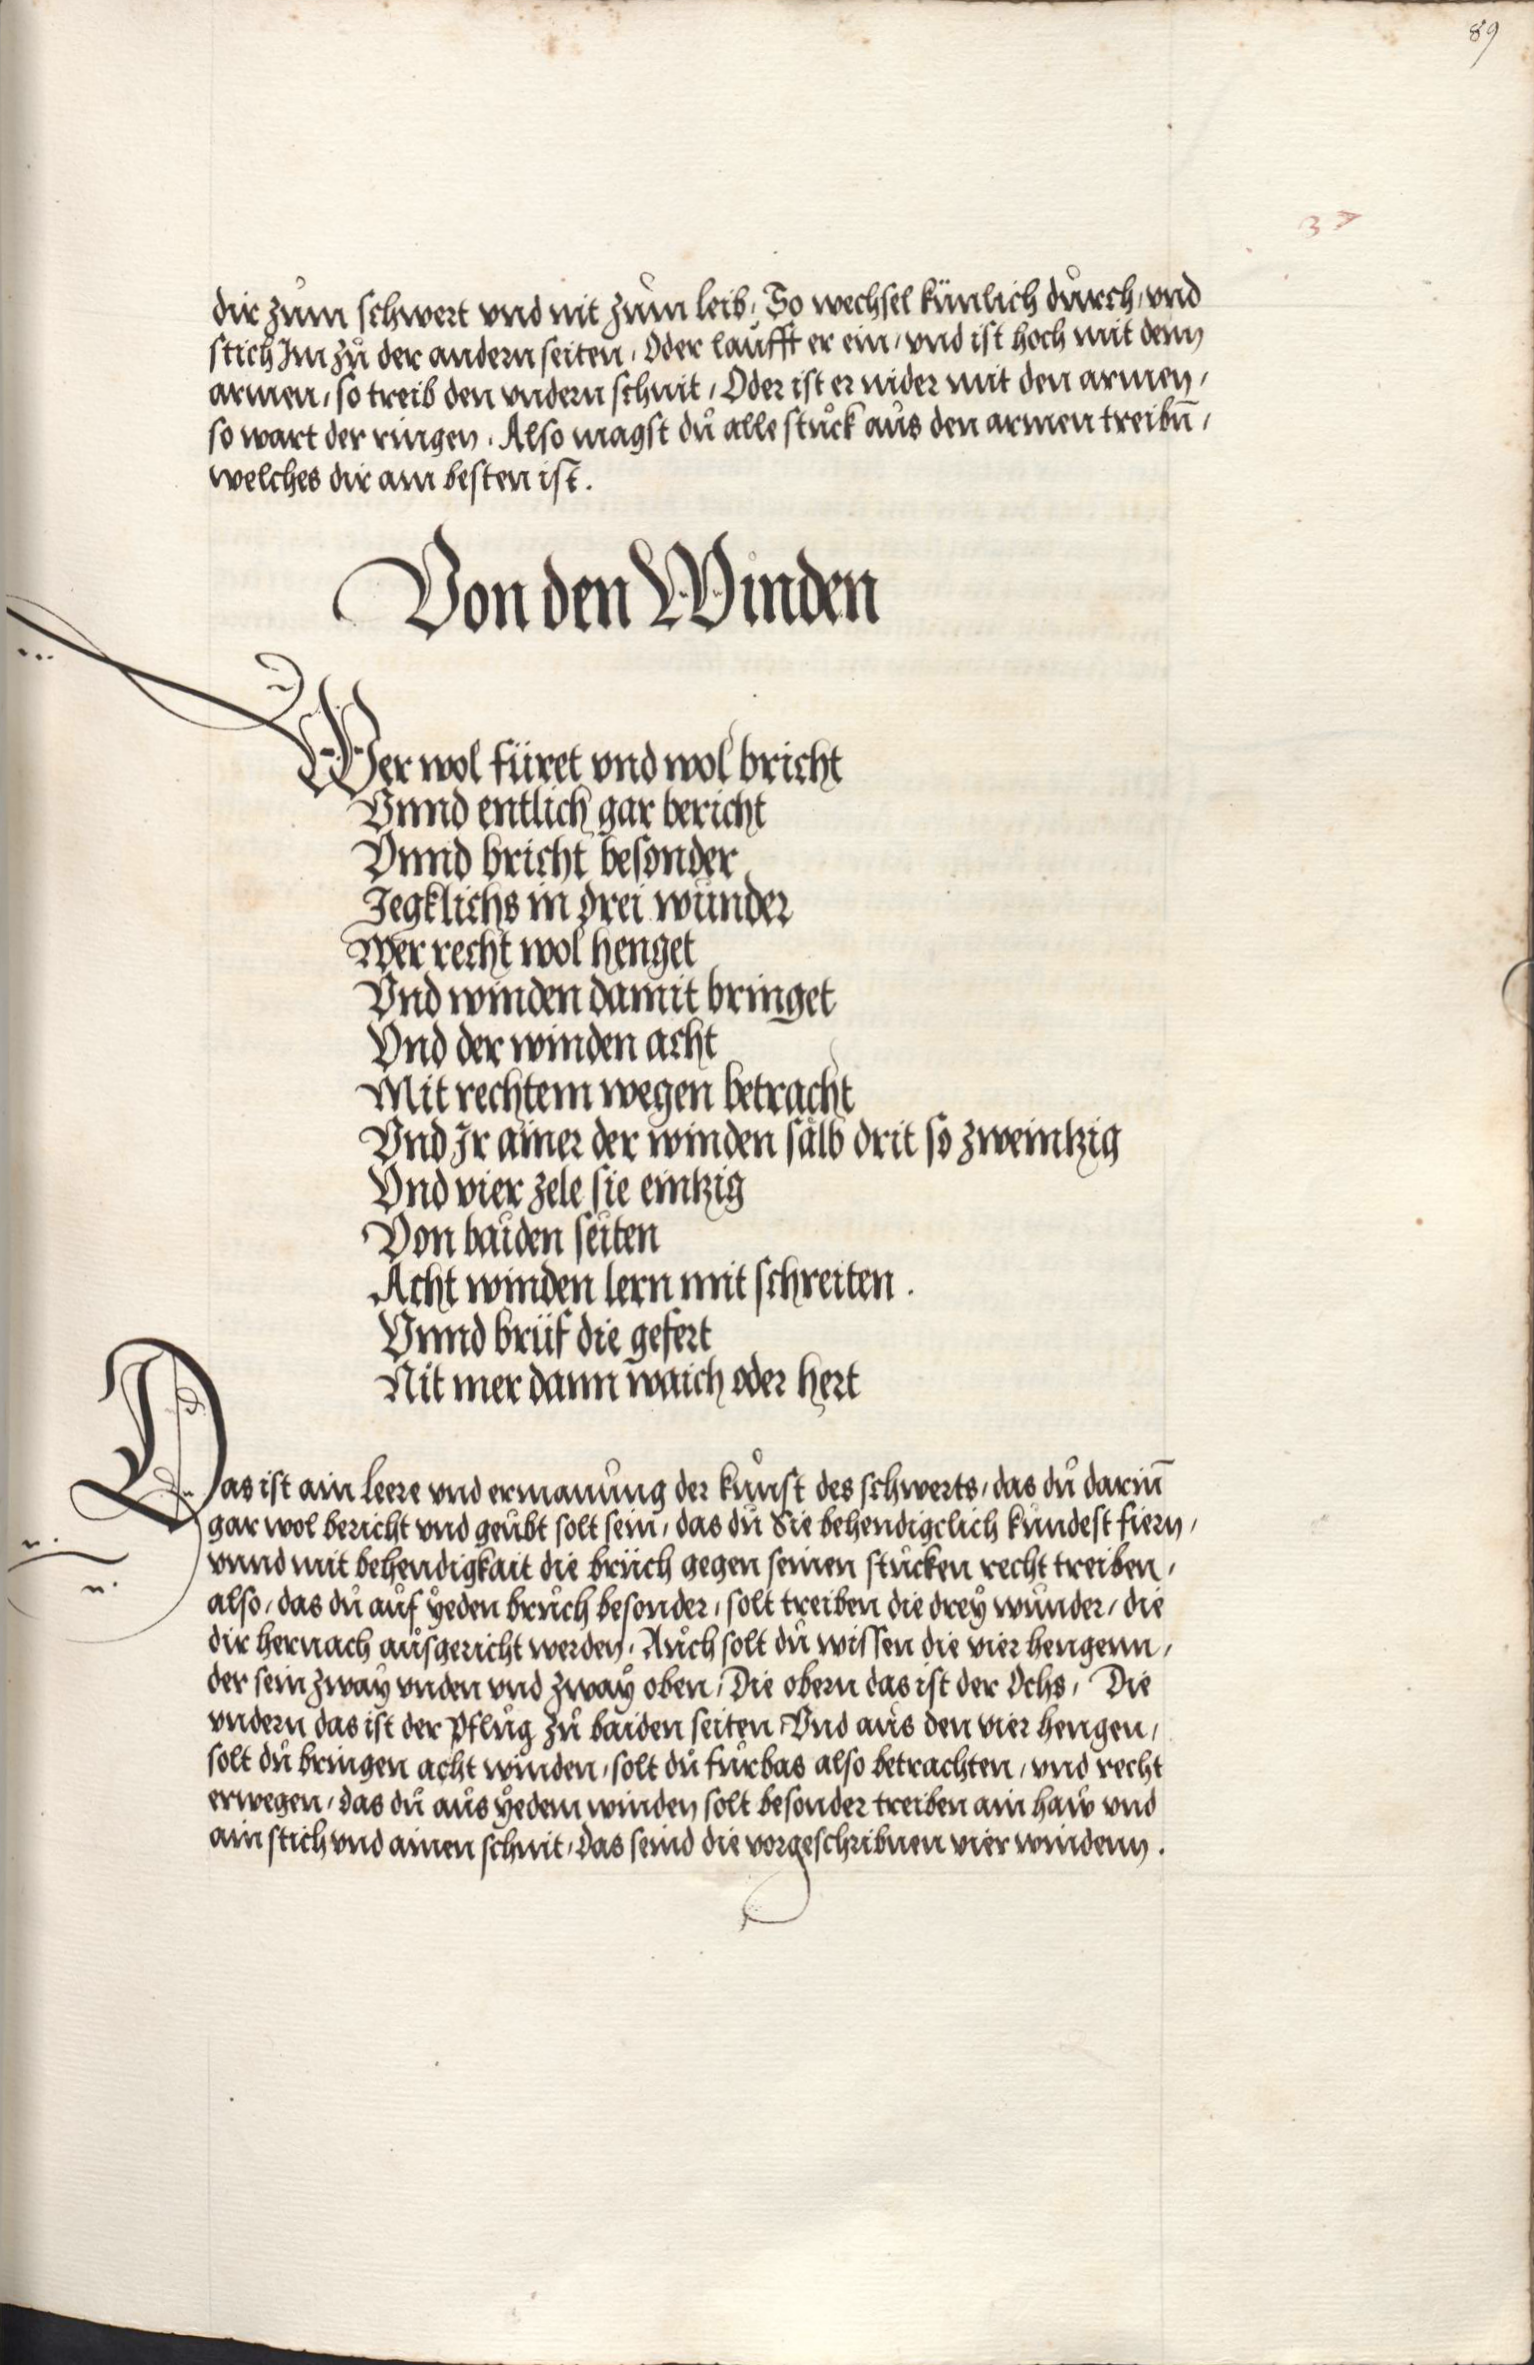 89
37
dir zum schwert vnd nit zum leib / So wechsel künlich durch / vnd
stich Im zů der andern seiten / Oder laufft er ein / vnd ist hoch mit denn
armen / so treib den vndern schnit / Oder ist er nider mit den armen /
so wart der ringen / Also magst dů alle stůck aůs den armen treibn̄ /
welches dir am besten ist .
Von den Winden
Wer wol füret vnd wol bricht
Vnnd entlich gar bericht
Vnnd bricht besonder
Jegklichs in drei wunder
Wer recht wol henget
Vnd winden damit bringet
Vnd der winden acht
Mit rechtem wegen betracht
Vnd Ir ainer der winden sälb drit so zweintzig
Vnd vier zele sie eintzig
Von baiden seiten
Acht winden lern mit schreiten .
Vnnd brüf die gefert
Nit mer dann waich oder hert
Das ist ain leere vnd ermanung der kůnst des schwerts / das dů darin̄
gar wol bericht vnd geůbt solt sein / das dů Sie behendigclich kůndest fiern /
vnnd mit behendigkait die brüch gegen seinen stůcken recht treiben /
also / das dů aůf ÿeden brůch besonder / solt treiben die dreÿ wůnder / die
dir hernach aůsgericht werden / Aůch solt dů wissen die vier hengenn /
der sein zwaÿ vnden vnd zwaÿ oben / Die obern das ist der Ochs / Die
vndern das ist der Pflůg zů baiden seiten / Vnd aůs den vier hengen /
solt dů bringen acht winden / solt dů fůrbas also betrachten / vnd recht
erwegen / das dů aůs ÿedem winden solt besonder treiben ain haw vnd
ain stich vnd ainen schnit / Das seind die vorgeschribnen vier windenn .